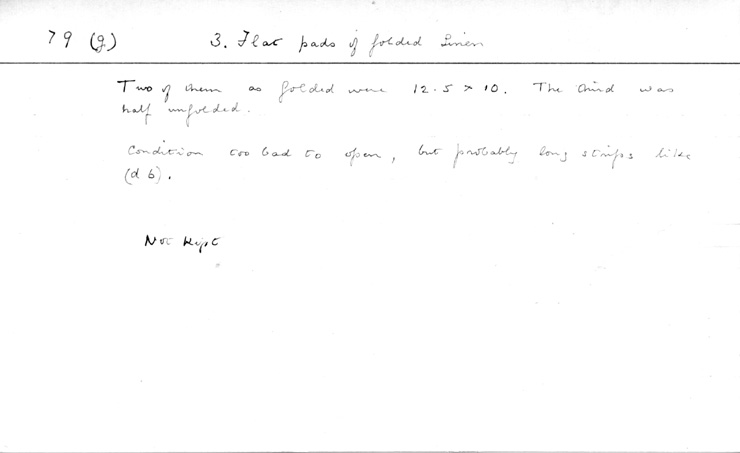 79 (g) 3. Flat pads of folded linen
Two of them as folded were 12.5 x 10. The third was
half unfolded.
Condition too bad to open, but probably long strips like
(d 6).
Not kept